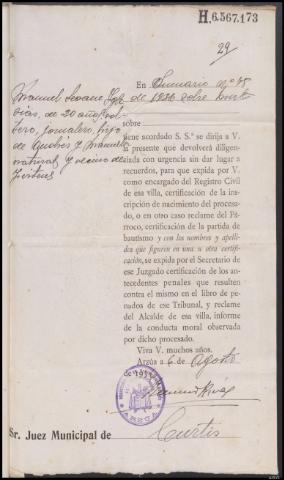 H.6.567.173
29
En Sumario nº 85
de 1936 sobre hurto
sobre
Manuel Seoane
de 20 años, sol-
tero, jornalero, hijo
de Andrés y Manuela
natural y vecino de
tiene acordado S. Sª se dirija a V.
la presente que devolverá diligen-
ciada con urgencia sin dar lugar a
recuerdos, para que expida por V.
como encargado del Registro Civil
de esa villa, certificación de la ins-
cripción de nacimiento del procesa-
do, o en otro caso reclame del Pá-
rroco, certificación de la partida de
bautismo y con los nombres y apelli-
dos que figuren en una u otra certifi-
cación, se expida por el Secretario de
ese Juzgado certificación de los an-
tecedentes penales que resulten
contra el mismo en el libro de pe-
nados de ese Tribunal, y reclame
del Alcalde de esa villa, informe
de la conducta moral observada
por dicho procesado.
Viva V. muchos años.
Arzúa 6 de Agosto
de 1936
ARZUA
Sr. Juez Municipal de Curtis